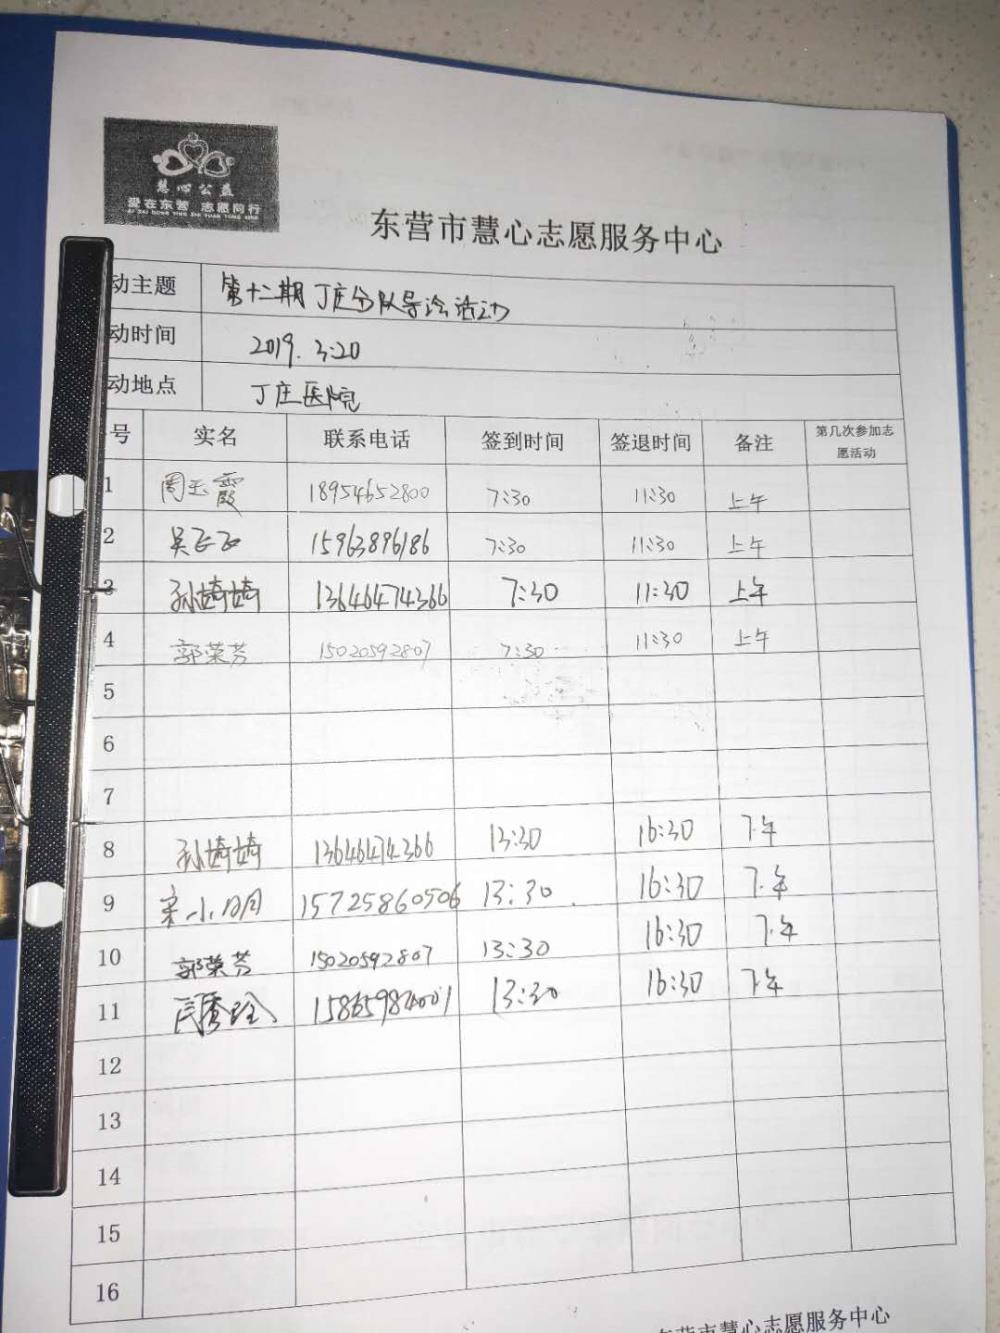 慧心公益
爱在东营 志愿同行
AI ZAI DONG YING ZHI YUAN TONG XING
东营市慧心志愿服务中心
动主题 第十二期丁庄分队导诊活动
动时间 2019.3.20
动地点 丁庄医院
号 实名 联系电话 签到时间 签退时间 备注 第几次参加志
愿活动
1 周玉霞 18954652800 7:30 11:30 上午
2 吴飞飞 15963896186 7:30 11:30 上午
3 孙婧婧 13646474366 7:30 11:30 上午
4 郭荣芳 15020592807 7:30 11:30 上午
5
6
7
8 孙婧婧 13646474366 13:30 16:30 下午
9 宋小明 15725860506 13:30 16:30 下午
10 郭荣芳 15020592807 13:30 16:30 下午
11 13:30 16:30 下午
12
13
14
15
16
东营市慧心志愿服务中心